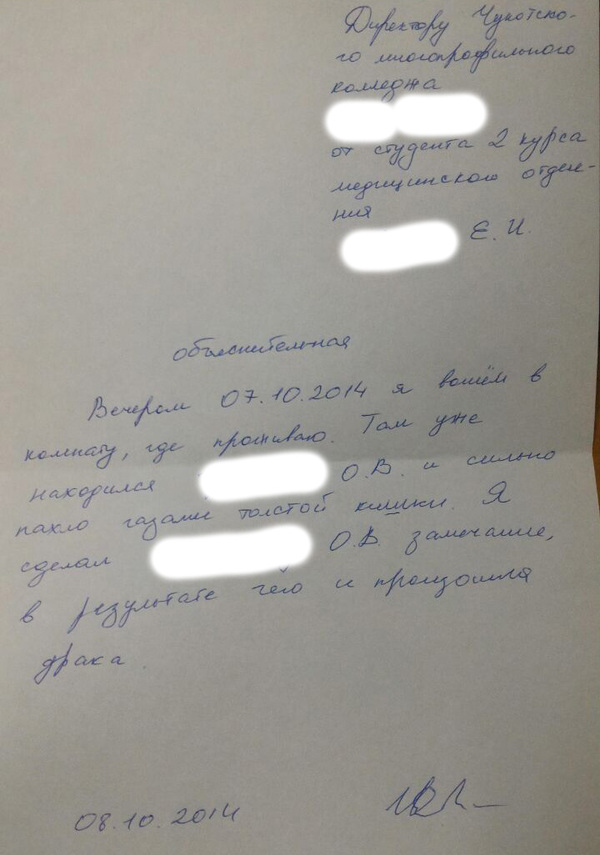 Директору Чукотско-
го многопрофильного
колледжа
от студента 2 курса
медицинского отделе-
ния
Е. И.
объяснительная
Вечером 07.10.2014 я вошёл в
комнату, где проживаю. Там уже
находился О.В. и сильно
пахло газами толстой кишки. Я
сделал О.В. замечание,
в результате чего и произошла
драка.
08.10.2014